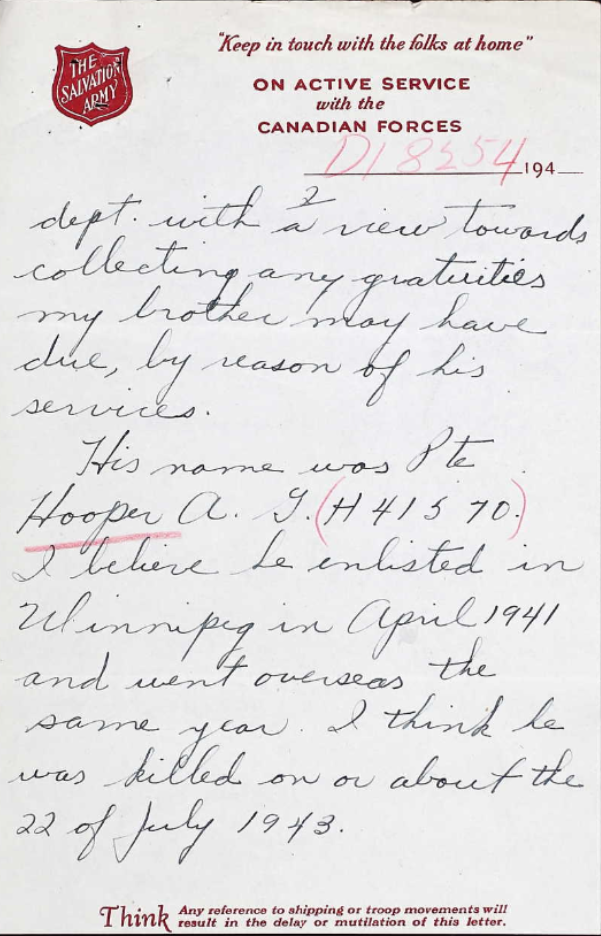 THE
SALVATION
ARMY
"Keep in touch with the folks at home"
ON ACTIVE SERVICE
with the
CANADIAN FORCES
D18554 194
2
dept. with a view towards
collecting any gratuities
my brother may have
due, by reason of his
services.
His name was Pte
Hooper A. G. (H 41570.)
I believe he enlisted in
Winnipeg in April 1941
and went overseas the
same year. I think he
was killed on or about the
22 of July 1943.
Think Any reference to shipping or troop movements will
result in the delay or mutilation of this letter.